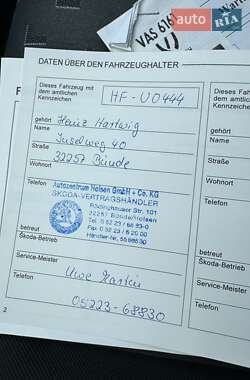 auto RIA .com
VAS 616
DATEN ÜBER DEN FAHRZEUGHALTER
Dieses Fahrzeug mit
dem amtlichen
Kennzeichen
HF-UO444
gehört
Name
Heinz Hartwig
Straße
Inselweg 40
Wohnort
32257 Bünde
Telefon
Autozentrum Nolsen GmbH + Co. KG
SKODA-VERTRAGSHÄNDLER
Rödinghauser Str. 101
32257 Bünde/Holsen
Tel. 0 52 23 / 68 83-0
Fax 0 52 23 / 6 20 00
Händler-Nr.
betreut
Škoda-Betrieb
Service-Meister
Uwe
Telefon
05223-68830
2
Dieses
dem
Kennz
gehört
Name
Straße
Wohnort
Telefon
betreut
Škoda-Betrieb
Service-Meister
Telefon